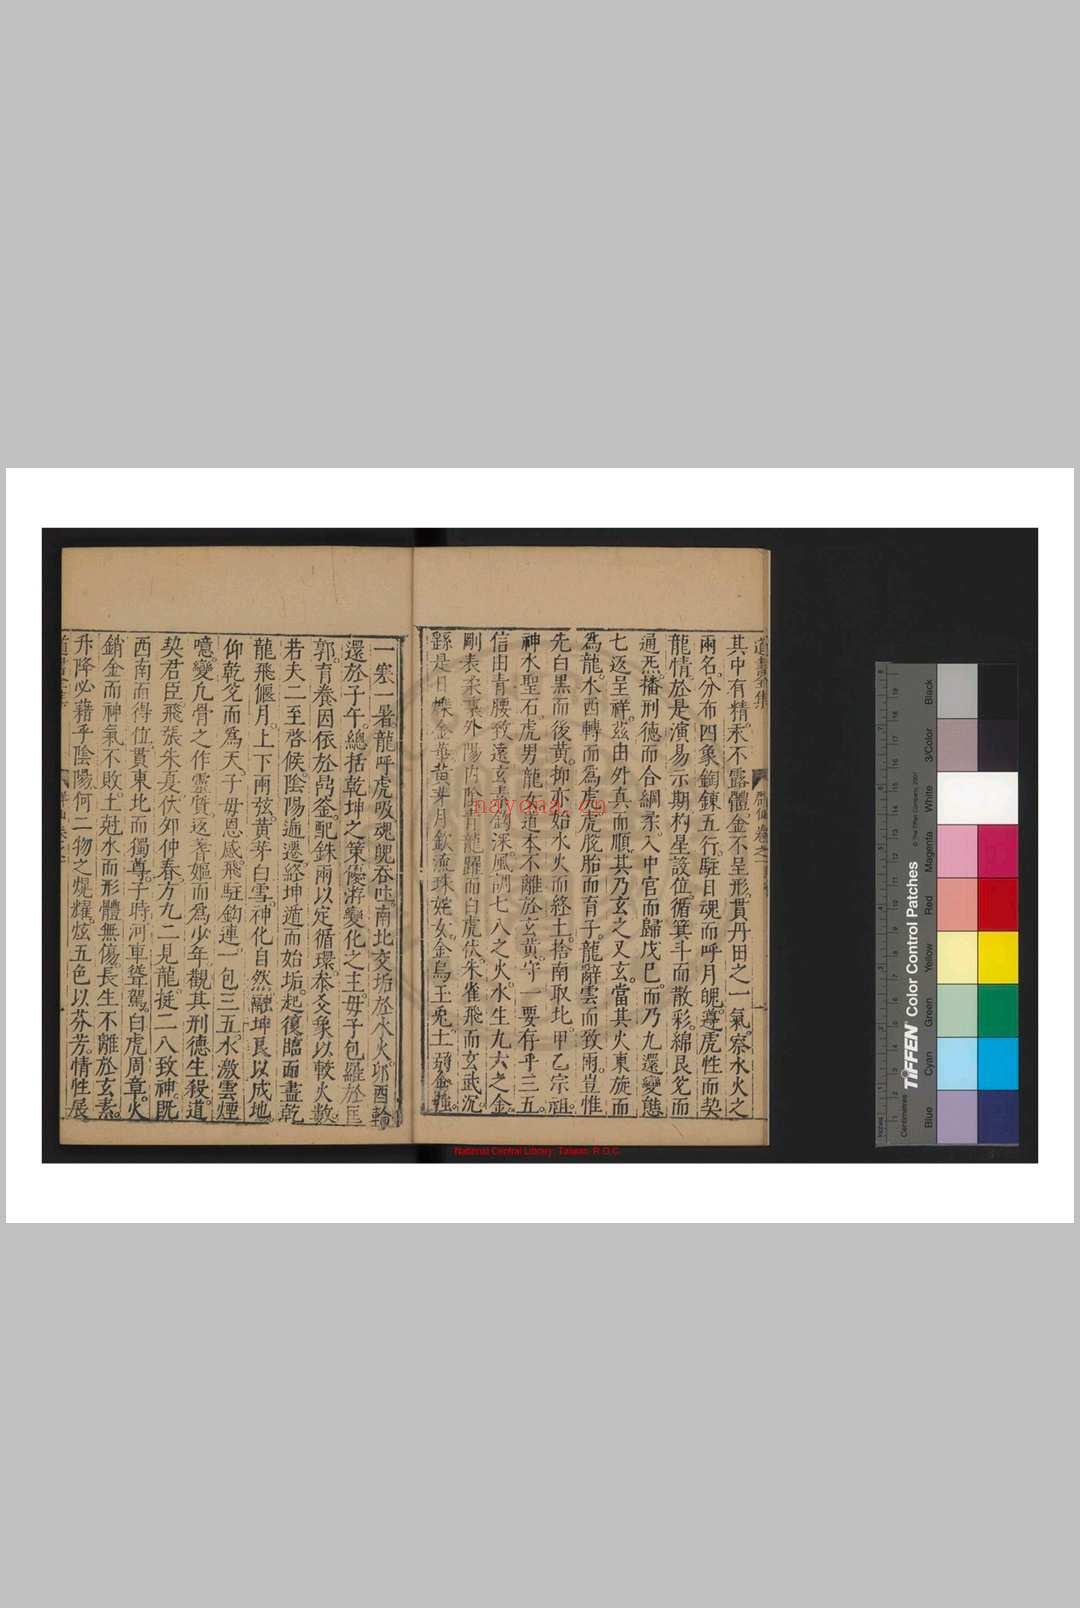 道書全集
其中有精汞不露體金不呈形貫丹田之一氣。察水火之
兩名。分布四象鎔鍊五行。駐日魂而呼月魄。遵虎性而契
龍情於是演易示期杓星設位。循箕斗而散彩。綿艮兌而
通炁。播刑德而合綱柔。入中宮而歸戊巳。而乃九還變態
七返呈祥。茲由外真而順其乃玄之又玄。當其火東旋而
爲龍。水西轉而爲虎。虎脫胎而育子。龍辭雲而致雨。豈惟
先白黑而後黃。抑亦始水火而終土。捨南取北甲乙宗祖。
神水聖石。虎男龍女。道本不離於玄黃。守一要存乎三五。
信由青腰致遠玄素鉤深。風調七八之火。水生九六之金。
剛表柔裏外陽內陰青龍躍而白虎伏。朱雀飛而玄武沉
繇是日 金華黃芽月 流珠姹女金烏玉兔土
一寒一暑。龍呼虎吸魂魄吞吐。南北交垢於水火。卯酉輪
還於子午。總括乾坤之策。優游變化之主。毋子包羅於匡
郭。育養因依於鼎釜。配銖兩以定循環。叅爻象以較火數
若夫二至啓候。陰陽遞遷。終坤遁而始垢。起復臨而盡乾
龍飛偃月。上下兩弦。黃芽白雪。神化自然融坤艮以成地。
仰乾兌而爲天。子毋恩感。飛駐鈎連。一包三五。水激雲煙
噫。變凡骨之作靈質。返耆嫗而爲少年觀其刑德生殺。道
契君臣。飛張朱夏伏卯仲春方九二見龍挺二八致神。既
西南而得位貫東北而獨尊。子時河車聳駕。白虎周章。火
銷金而神氣不敗。土尅水而形體無傷。長生不離於玄素。
升降必藉乎陰陽。何二物之焜耀。炫五色以芬芳。情性展
nayona.cn
National Central Library, Taiwan, R.O.C.
TIFFEN Color Control Patches
© The Tiffen Company, 2007
Centimetres
Inches
Blue
Cyan
Green
Yellow
Red
Magenta
White
3/Color
Black